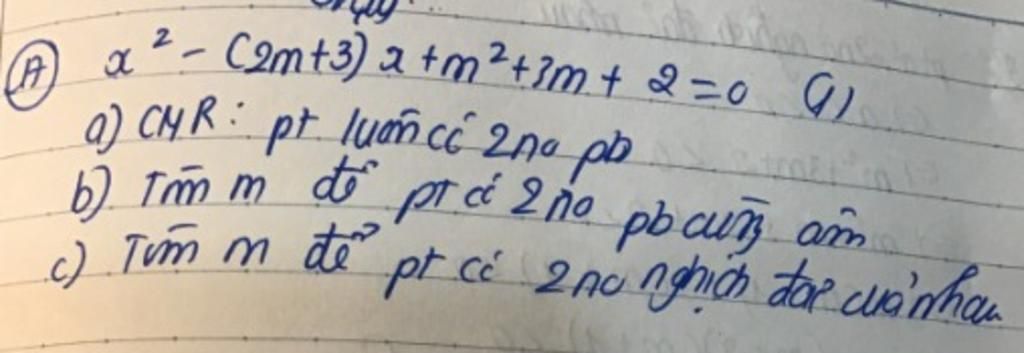 A x² - (2m+3)x + m² + 3m + 2 = 0 (1)
a) CMR: pt luôn có 2 no pb
b) Tìm m để pt có 2 no pb cùng âm
c) Tìm m để pt có 2 no nghịch đảo của nhau